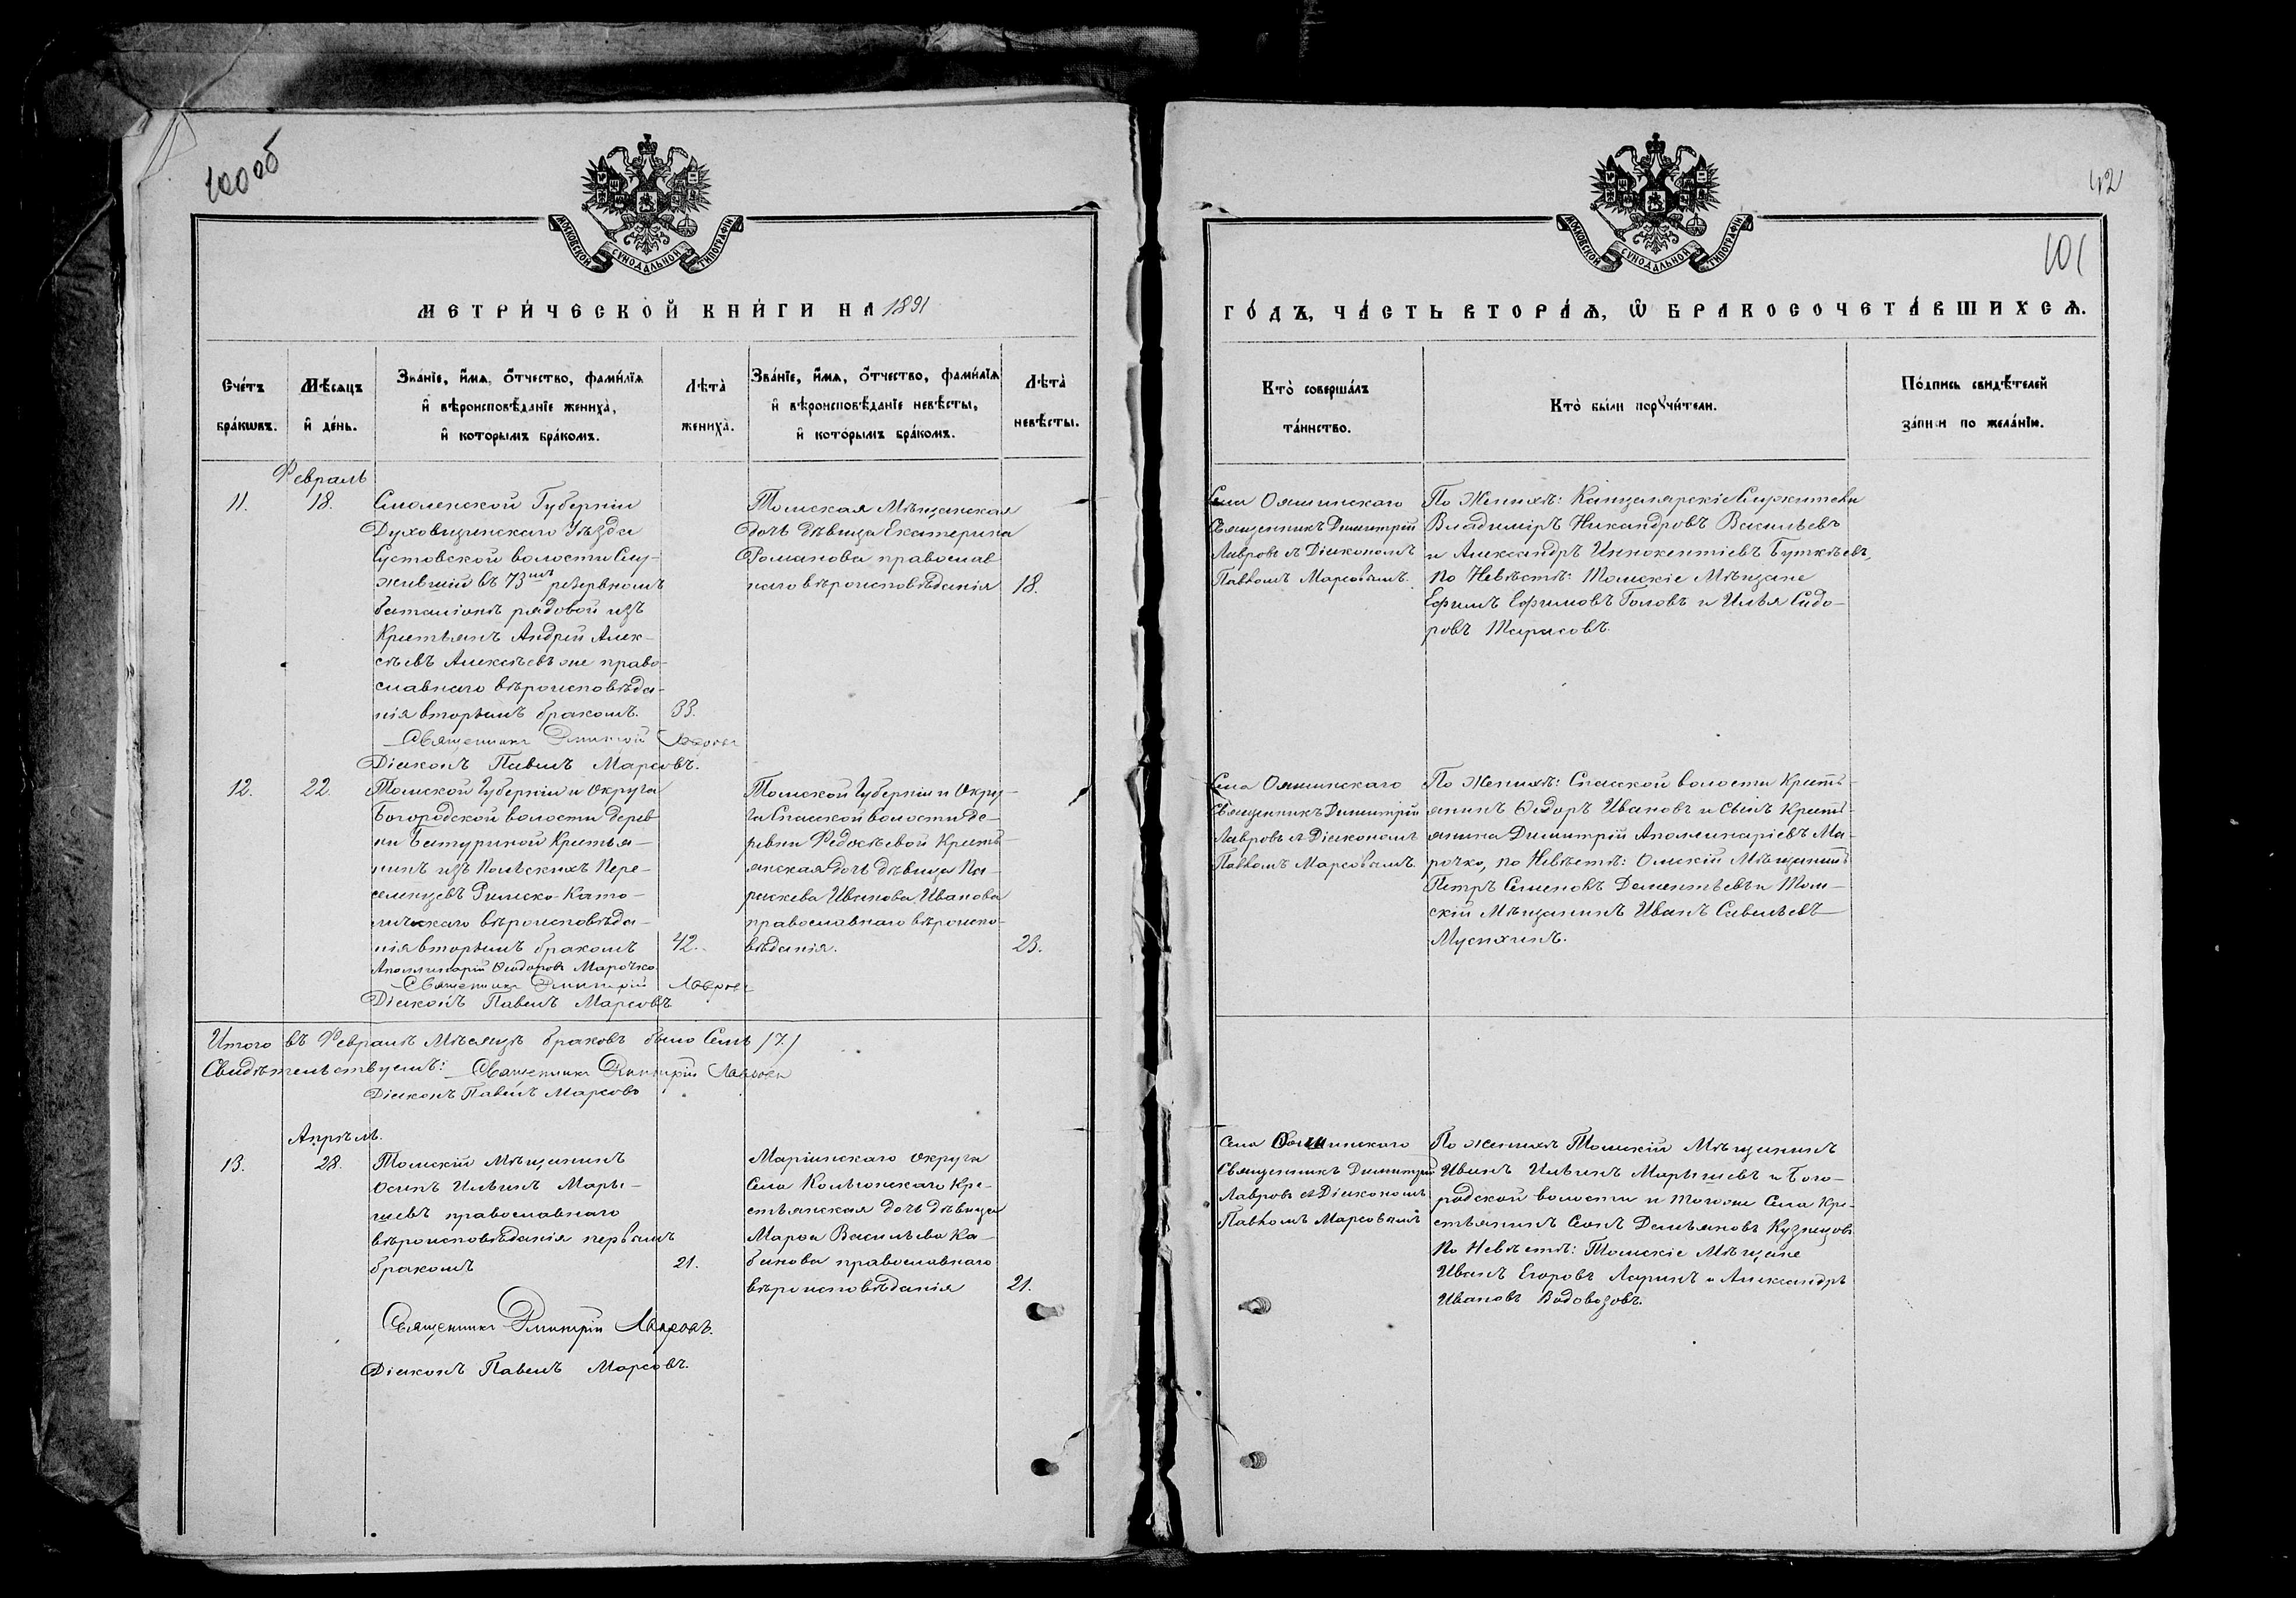 100 об
МОСКОВСКОЙ СѴНОДАЛЬНОЙ ТИПОГРАФІИ
МЕТРИ́ЧЕСКОЙ КНИ́ГИ НА 1891
Сче́тъ бра́кѡвъ.
Мѣ́сяцъ и҆ де́нь.
Зва́нїе, и҆́мѧ, ѻ҆́тчество, фами́лїѧ и҆ вѣроисповѣ́данїе жениха̀, и҆ кото́рымъ бра́комъ.
Лѣ́та жениха̀.
Зва́нїе, и҆́мѧ, ѻ҆́тчество, фами́лїѧ и҆ вѣроисповѣ́данїе невѣ́сты, и҆ кото́рымъ бра́комъ.
Лѣ́та невѣ́сты.
Февраль
11.
18.
Смоленской Губерніи
Духовщинскаго Уѣзда
волости Слу-
жившій въ 73мъ резервномъ
баталіонѣ рядовой изъ
Крестьянъ Андрей Алек-
сѣевъ Алексѣевъ же право-
славнаго вѣроисповѣда-
нія вторымъ бракомъ.
33.
Томская Мѣщанская
дочь дѣвица Екатерина
Романова православ
наго вѣроисповѣданія
18.
Священникъ Димитрій Лавровъ
Діаконъ Павелъ Марсовъ.
12.
22.
Томской Губерніи и Округа
Богородской волости дерев
ни Батуриной Крестья-
нинъ изъ Польскихъ Пере-
селенцевъ Римско-Като-
личскаго вѣроисповѣда-
нія вторымъ бракомъ
Аполлинарій Ѳеодоровъ Марочко
42.
Томской Губерніи и Окру-
га Спасской волости де-
ревни Федосѣевой Кресть-
янская дочь дѣвица Па-
раскева Иванова Иванова
православнаго вѣроиспо-
вѣданія.
23.
Священникъ Димитрій Лавровъ
Діаконъ Павелъ Марсовъ
Итого въ Февралѣ Мѣсяцѣ браковъ было Семь /7/
Свидѣтельствуемъ: Священникъ Димитрій Лавровъ
Діаконъ Павелъ Марсовъ
Апрѣль.
13.
28.
Томскій Мѣщанинъ
Осипъ Ильинъ Мары-
шевъ православнаго
вѣроисповѣданія первымъ
бракомъ
21.
Маріинскаго округа
Села Колыонскаго Кре-
стьянская дочь дѣвица
Марѳа Васильева Ка-
банова православнаго
вѣроисповѣданія
21.
Священникъ Димитрій Лавровъ.
Діаконъ Павелъ Марсовъ.
42
101
МОСКОВСКОЙ СѴНОДАЛЬНОЙ ТИПОГРАФІИ
ГО́ДЪ, ЧА́СТЬ ВТОРА́Ѧ, Ѡ҆ БРАКОСОЧЕТА́ВШИХСѦ.
Кто̀ соверша́лъ та́инство.
Кто̀ бы́ли порꙋчи́тели.
По́дпись свидѣ́телей за́писи по жела́нїи.
Села Ояшинскаго
Священникъ Димитрій
Лавровъ съ Діакономъ
Павломъ Марсовымъ.
По Женихѣ: Канцелярскіе Служители
Владиміръ Никандровъ Васильевъ
и Александръ Иннокентіевъ Буткѣевъ,
по Невѣстѣ: Томскіе Мѣщане
Ефимъ Ефимовъ Головъ и Илья Сидо-
ровъ Тарасовъ.
Села Ояшинскаго
Священникъ Димитрій
Лавровъ съ Діакономъ
Павломъ Марсовымъ.
По Женихѣ: Спасской волости Кресть-
янинъ Ѳедоръ Ивановъ и Сынъ Кресть-
янина Димитрій Аполлинаріевъ Ма-
рочко, по Невѣстѣ: Омскій Мѣщанинъ
Петръ Семеновъ Дементьевъ и Том-
скій Мѣщанинъ Иванъ Савельевъ
Мусихинъ.
Села Ояшинскаго
Священникъ Димитрій
Лавровъ съ Діакономъ
Павломъ Марсовымъ
По женихѣ Томскій Мѣщанинъ
Иванъ Ильинъ Марышевъ и Бого-
родской волости и того же Села Кре-
стьянинъ Семъ Демьяновъ Кузнецовъ
По Невѣстѣ: Томскіе Мѣщане
Иванъ Егоровъ Ларинъ и Александръ
Ивановъ Водовозовъ.